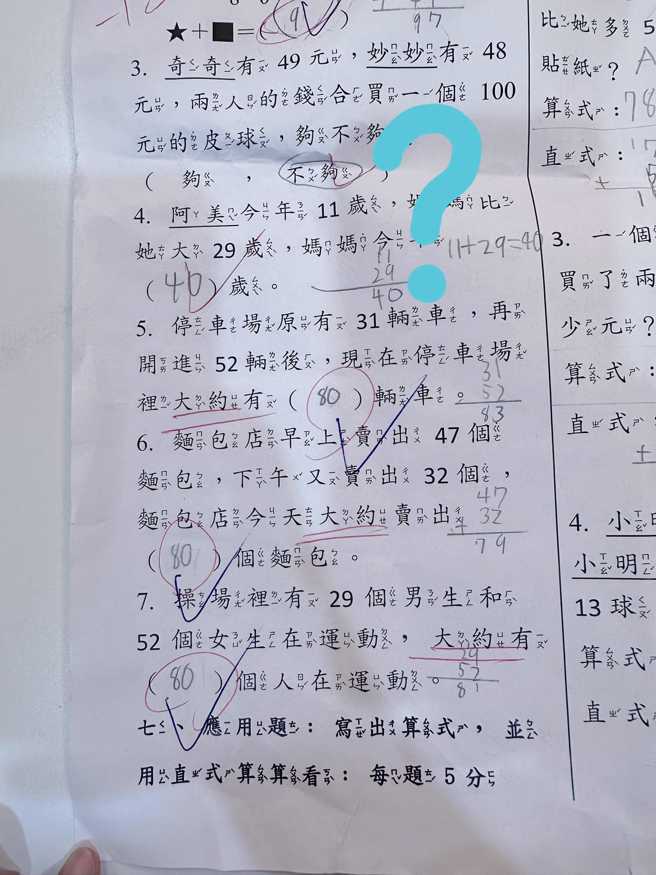 ★＋■＝( 9 )
97
3. 奇奇有 49 元，妙妙有 48
元，兩人的錢合買一個 100
元的皮球，夠不夠
( 夠 ， 不夠 )
4. 阿美今年 11 歲，媽媽比
她大 29 歲，媽媽今
( 40 ) 歲。
11+29=40
11
29
40
5. 停車場原有 31 輛車，再
開進 52 輛後，現在停車場
裡大約有 ( 80 ) 輛車。
31
52
83
6. 麵包店早上賣出 47 個
麵包，下午又賣出 32 個，
麵包店今天大約賣出
( 80 ) 個麵包。
47
+ 32
79
7. 操場裡有 29 個男生和
52 個女生在運動， 大約有
( 80 ) 個人在運動。
29
52
81
七、應用題：寫出算算式，並
用直式算算看：每題 5 分
比她多 5
貼紙？ A
算式：78
直式：
+
3. 一個
買了兩
少元？
算式：
直式
+
4. 小
小明
13 球
算式
直式
?